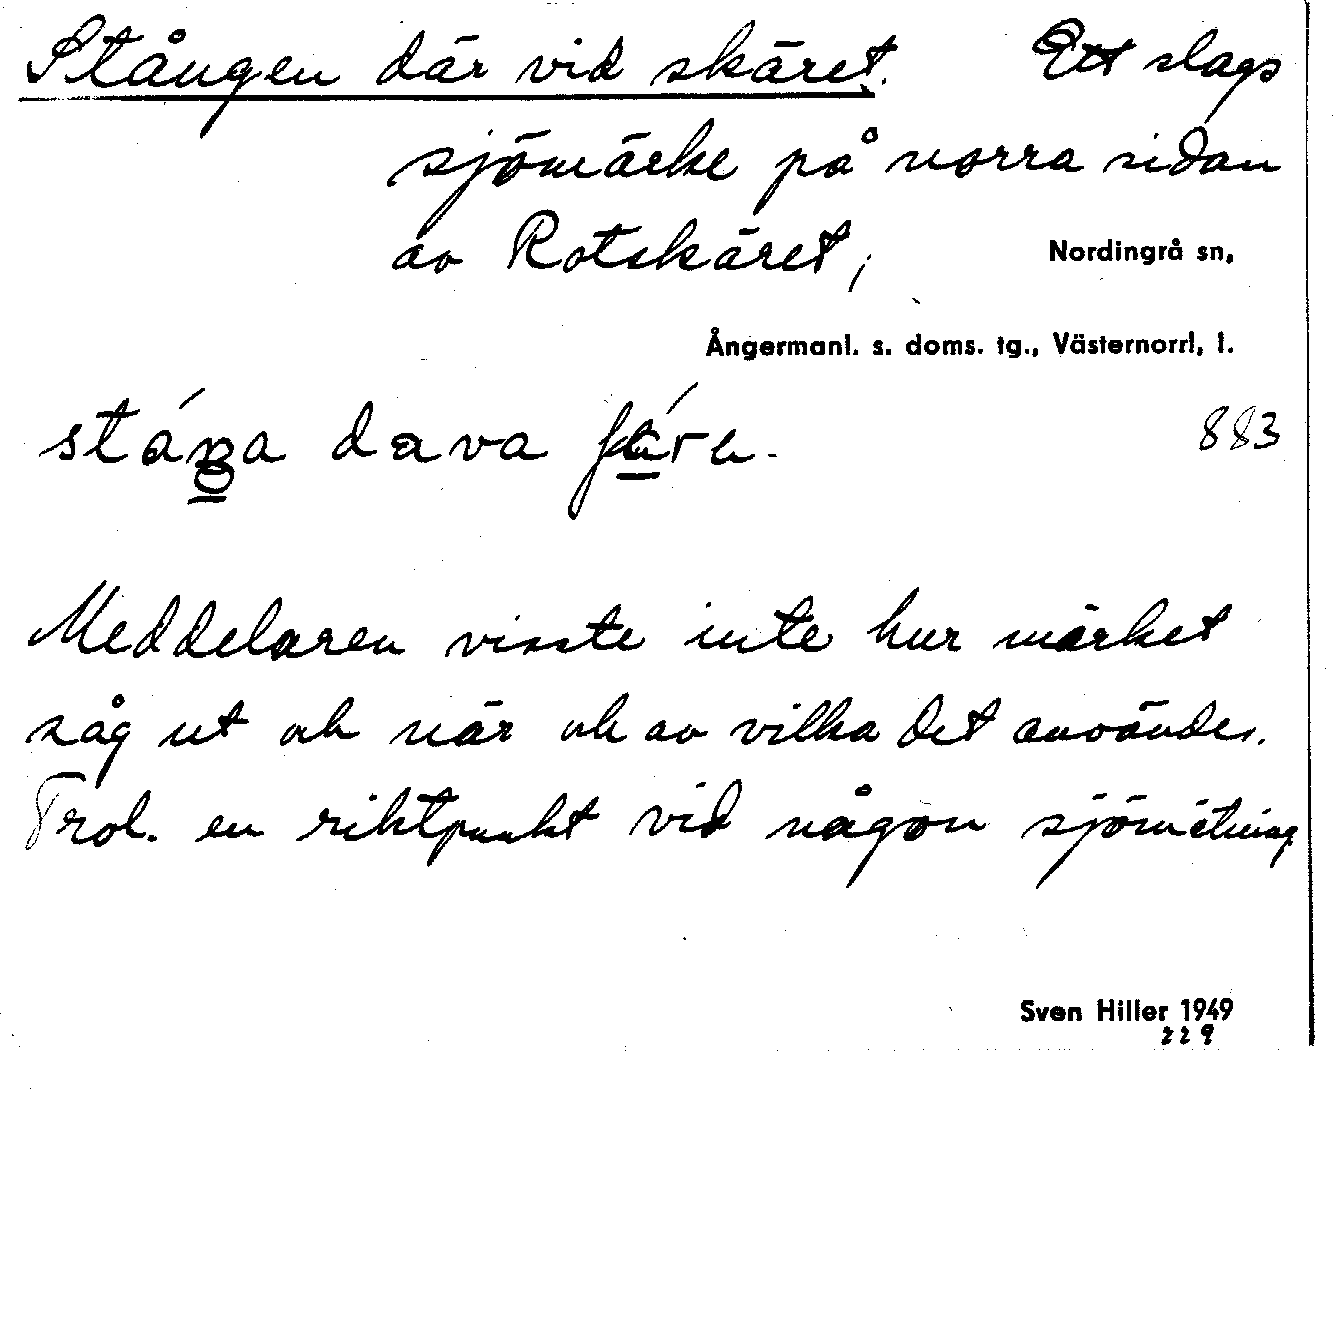 Stången där vid skäret. Ett slags
sjömärke på norra sidan
av Rotskäret,
Nordingrå sn,
Ångermanl. s. doms. tg., Västernorrl, l.
883
Meddelaren visste inte hur märket
såg ut och när och av vilka det användes.
Trol. en riktpunkt vid någon sjömätning
Sven Hiller 1949
229